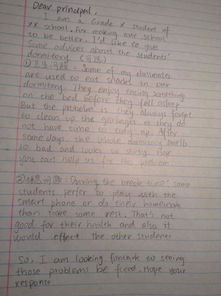 Dear principal,
I am a Grade x student of
xx school. For making our school
to be better, I'd like to give
some advices about the students'
dormitory.
① Some of my classmates
are used to eat snacks in our
dormitory. They enjoy eating something
on the bed before they fall asleep.
But the problem is they always forget
to clean up the garbages as they do
not have time to tidy up. After
some days, the whole dormitory smells
so bad and looks so dirty. Hope
you can help us fix it up soon.
② During the break time, some
students perfer to play with the
smart phone or do their homework
than take some rest. That's not
good for their health and also it
would effect the other students
So, I am looking forward to seeing
those problems be fixed. Hope your
response